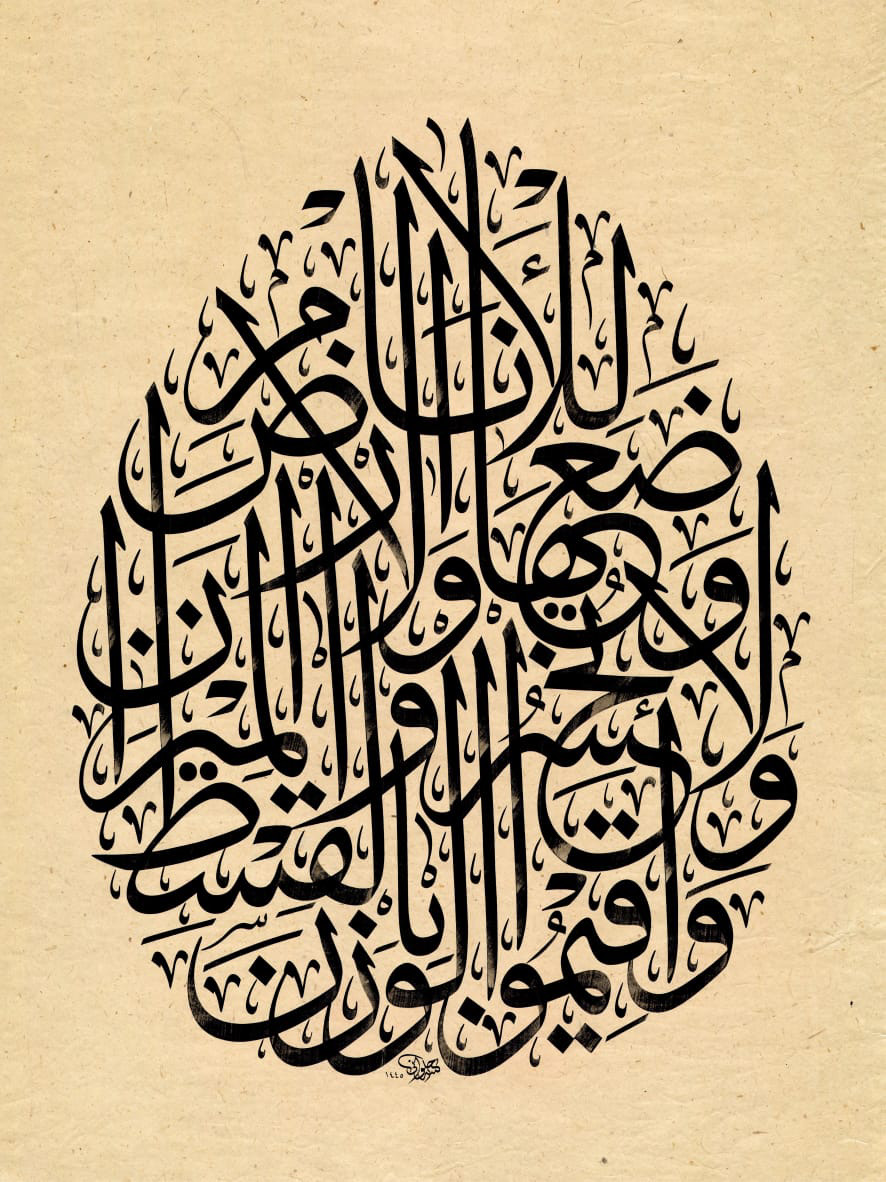 وَأَقِيمُوا الْوَزْنَ بِالْقِسْطِ
وَلَا تُخْسِرُوا الْمِيزَانَ
وَالْأَرْضَ وَضَعَهَا لِلْأَنَامِ
١٤٤٥